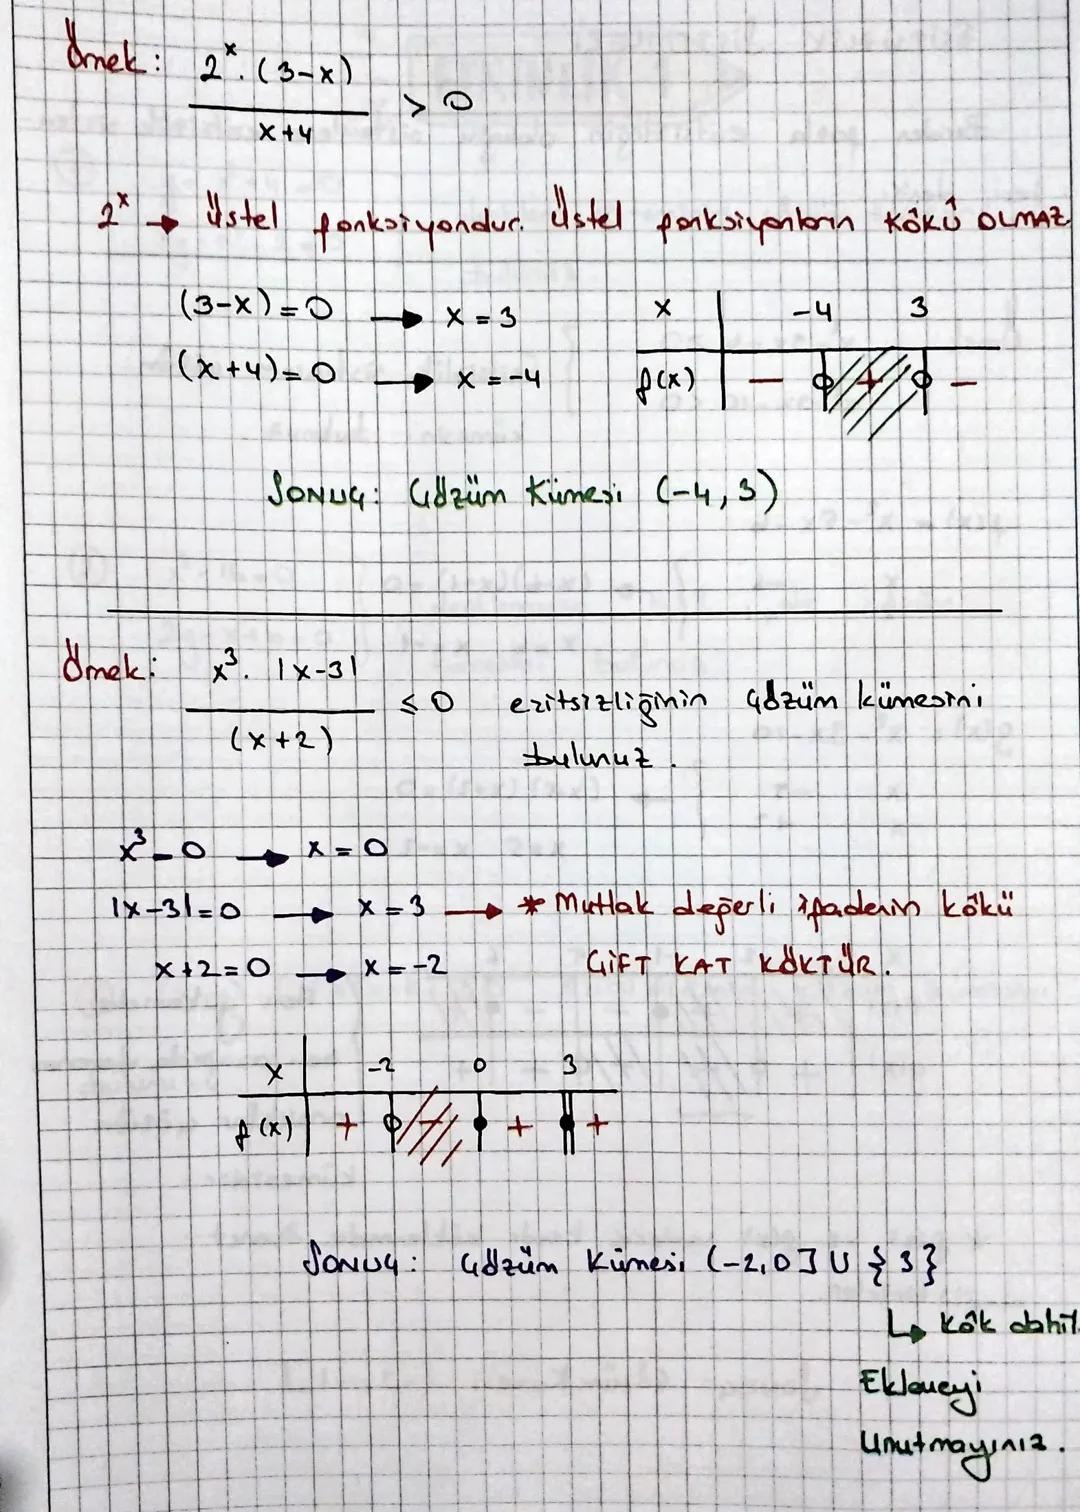 Örnek: 2^x . (3-x) / x+4 > 0
2^x → Üstel fonksiyondur. Üstel fonksiyonların KÖKÜ OLMAZ
(3-x)=0 → x = 3
(x+4)=0 → x = -4
x | -4 3
f(x) | - + -
SONUÇ: Çözüm Kümesi (-4, 3)
Örnek: x^3 . |x-3| / (x+2) ≤ 0 eşitsizliğinin çözüm kümesini
bulunuz.
x^3 = 0 → x = 0
|x-3|=0 → x = 3 → * Mutlak değerli ifadenin kökü
ÇİFT KAT KÖKTÜR.
x+2=0 → x = -2
x | -2 0 3
f(x) | + - + +
SONUÇ: Çözüm Kümesi (-2,0] U {3}
↳ Kök dahil.
Eklemeyi
Unutmayınız.